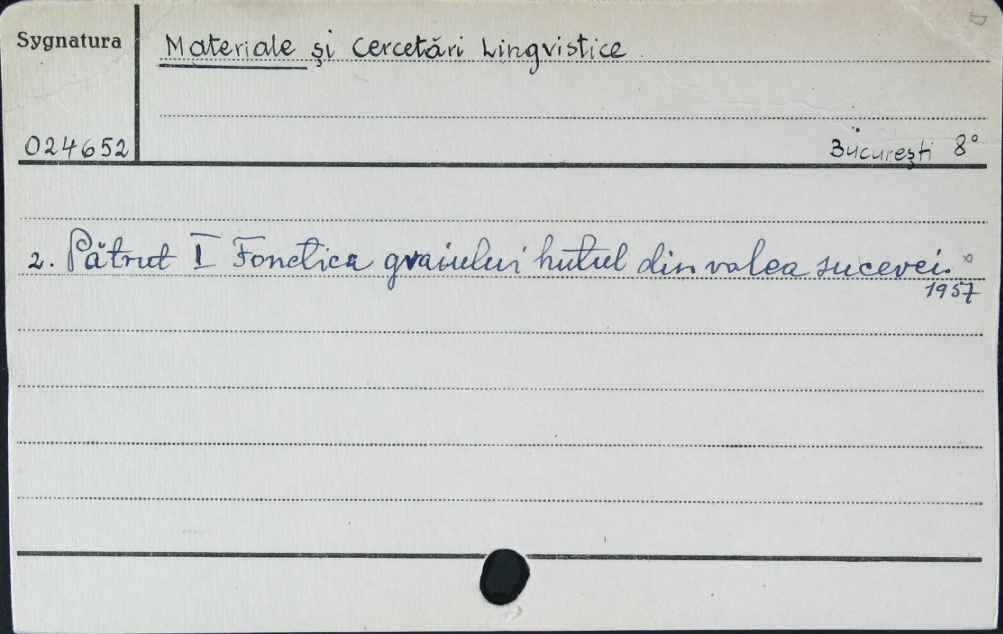 Sygnatura
Materiale și Cercetări Lingvistice
024652
București 8°
2. Pătrut I Fonetica graiului huțul din valea sucevei.
1957